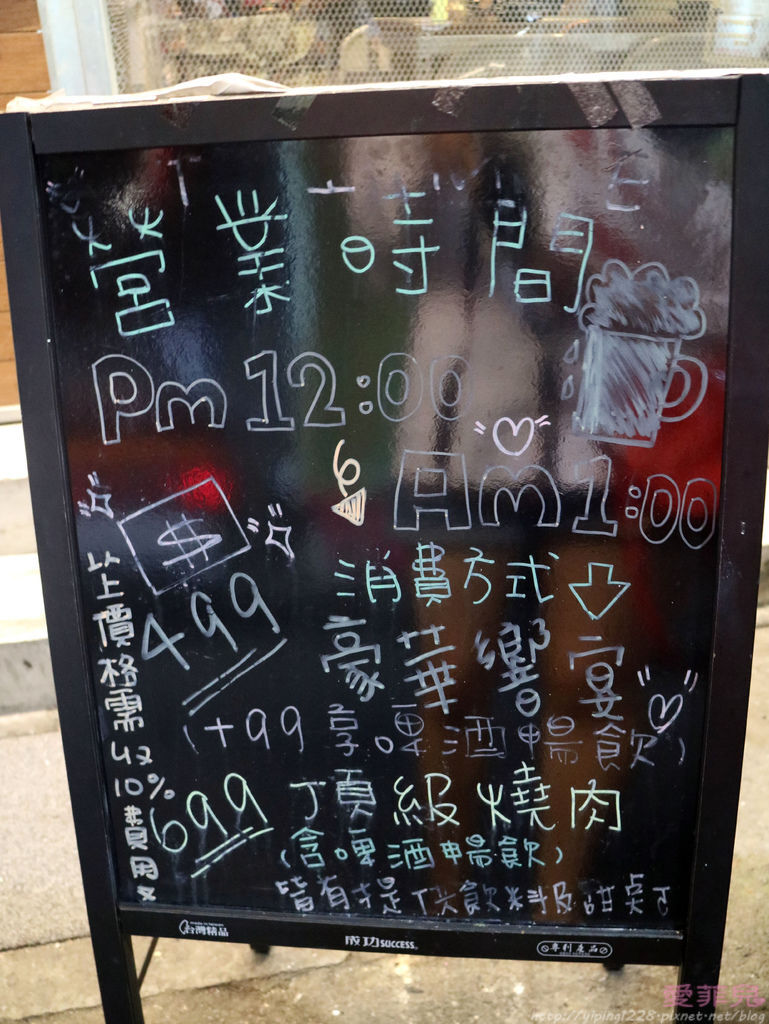 營業時間
Pm 12:00
Am 1:00
$
消費方式
499
豪華饗宴
(+99 享啤酒暢飲)
699 頂級燒肉
(含啤酒暢飲)
皆有提供飲料及甜点
以上價格需收10%費用
台灣精品
成功SUCCESS
專利產品
愛菲兒
http://yiping1228.pixnet.net/blog